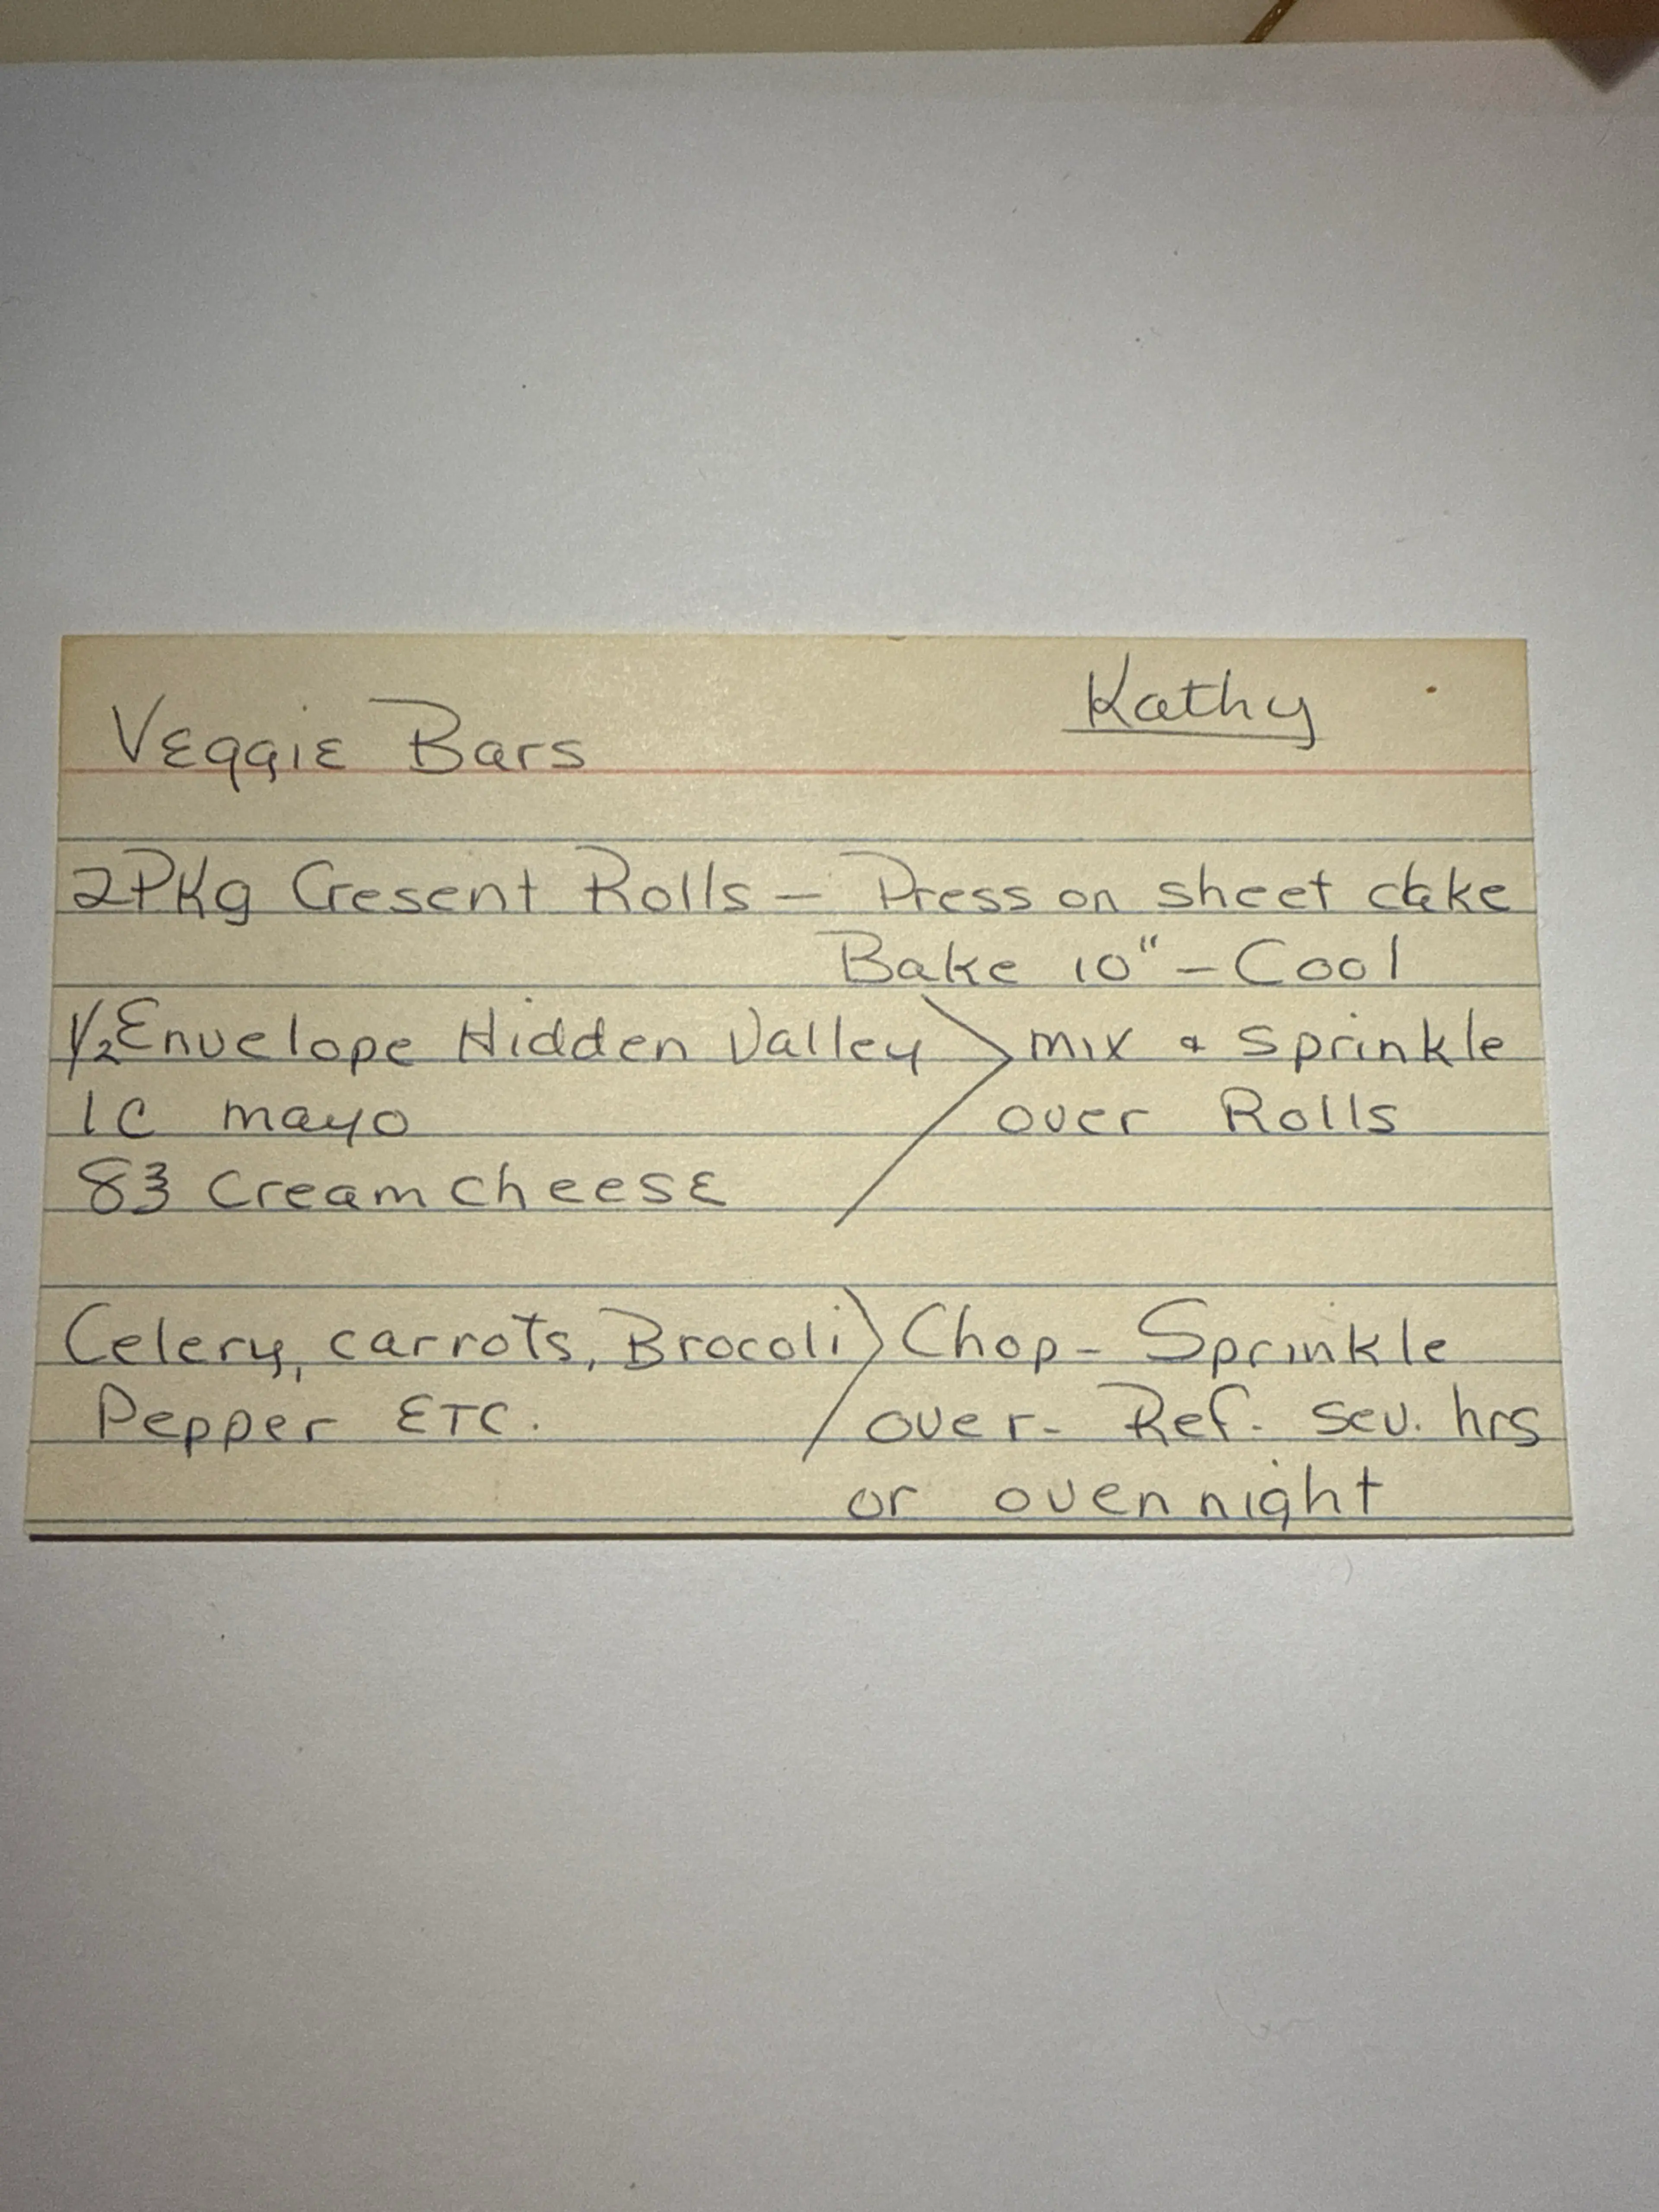 Veggie Bars Kathy
2 Pkg Cresent Rolls — Press on sheet cake
Bake 10" — Cool
1/2 Envelope Hidden Valley > mix & sprinkle
1 C mayo over Rolls
8 ℥ Cream cheese
Celery, carrots, Brocoli > Chop - Sprinkle
Pepper ETC. over - Ref. sev. hrs
or overnight